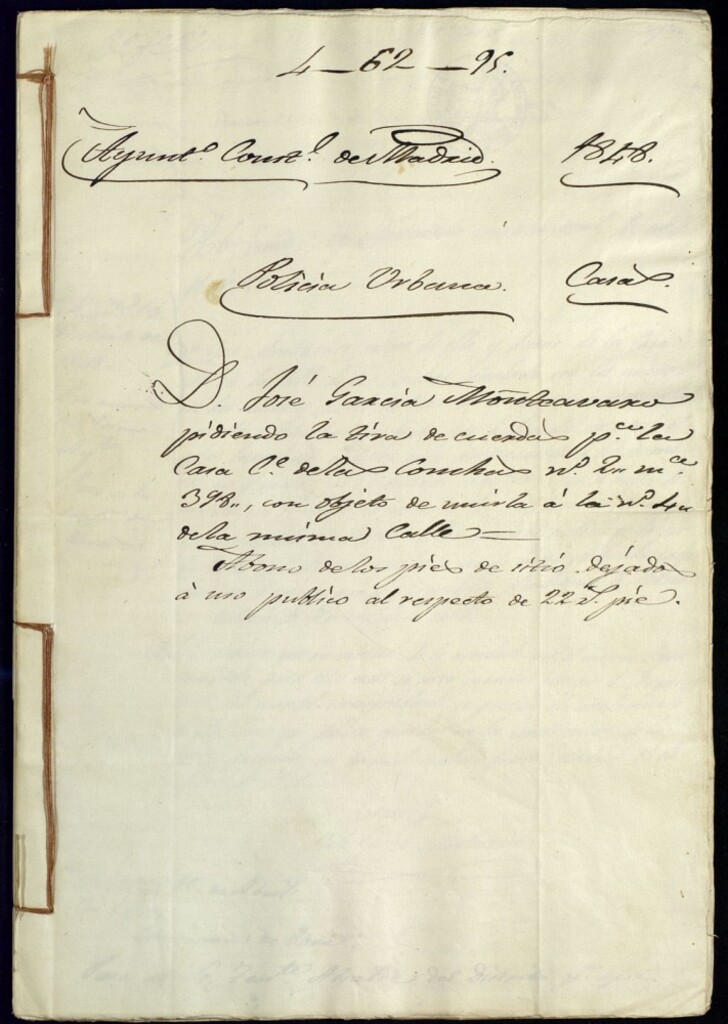 4-62-95.
Ayunt.º Const.l de Madrid. 1848.
Policia Urbana. Casas.
D. José Garcia Monteavaro
pidiendo la tira de cuerdas p.ª la
Casa C.e de las Conchas n.º 2,, m.ª
398,, con objeto de unirla á la n.º 4,,
de la misma Calle =
Abono de los pies de sitio dejados
à uso publico al respecto de 22 r.s pie.